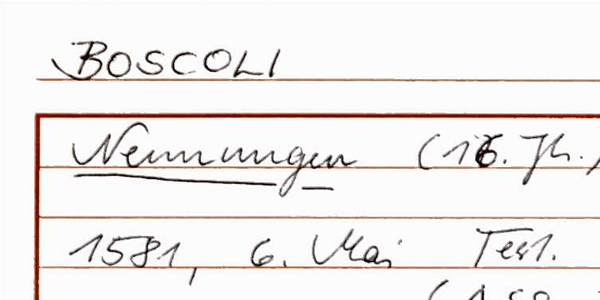 BOSCOLI
Nennungen (16. Jh.)
1581, 6. Mai Test.